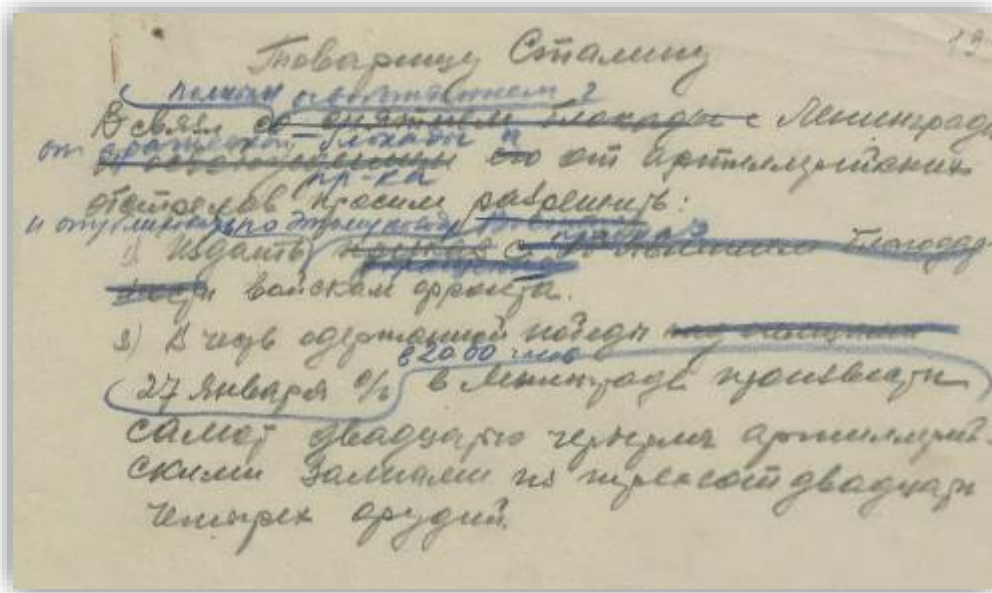 19
Товарищу Сталину
полным освобождением г
В связи со снятием блокады с Ленинграда
от вражеской блокады и
и освобождением его от артиллерийских
пр-ка
обстрелов просим разрешить:
и опубликовать по этому поводу
1) Издать приказ с благодар
ности войскам фронта.
2) В честь одержанной победы
в 20 00 часов
27 января с/г в Ленинграде произвести
салют двадцатью четырьмя артиллерий-
скими залпами из трехсот двадцати
четырех орудий.